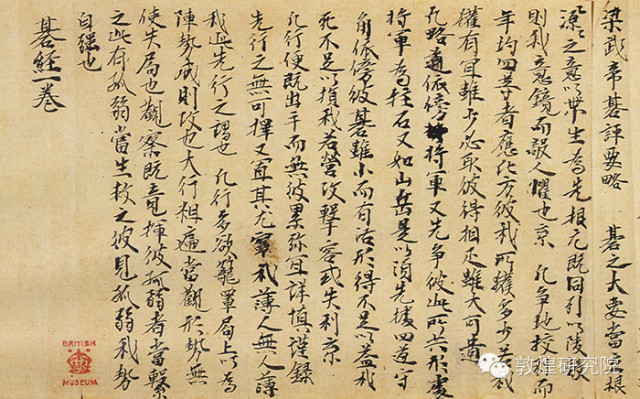 梁武帝碁評要略 碁之大要當立根
源之意以帶生為先根元既同引以陵敵
則我意鏡而敵人懼也京 凡爭地校利而
年均四等者應比方彼我所獲多少若我
獲有宜雖少必取彼得相足雖大可遺
凡略道依傍將軍又先爭彼此所共形處
將軍為柱石又如山岳是以須先據四道守
角依傍級碁雖小而有活形得不足以益我
死不足以損我若營攻擊容或失利京
凡行便既出手而無彼累弥宜詳慎謹錄
先行之無可擇又宜其尤 我薄人無人薄
我此先行之謂也 凡行多欲籠罩局上以為
陣勢成則攻也大行相逼當觀形勢無
使失局也觀察既竟揮彼孤弱者當繫
之此有孤弱當生救之彼見孤弱我勢
自強也
碁經一卷
BRITISH
MUSEUM
敦煌研究院